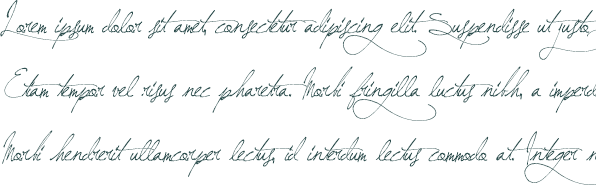 Lorem ipsum dolor sit amet, consectetur adipiscing elit. Suspendisse ut justo,
Etiam tempor vel risus nec pharetra. Morbi fringilla luctus nibh, a imperd
Morbi hendrerit ullamcorper lectus, id interdum lectus commodo at. Integer n